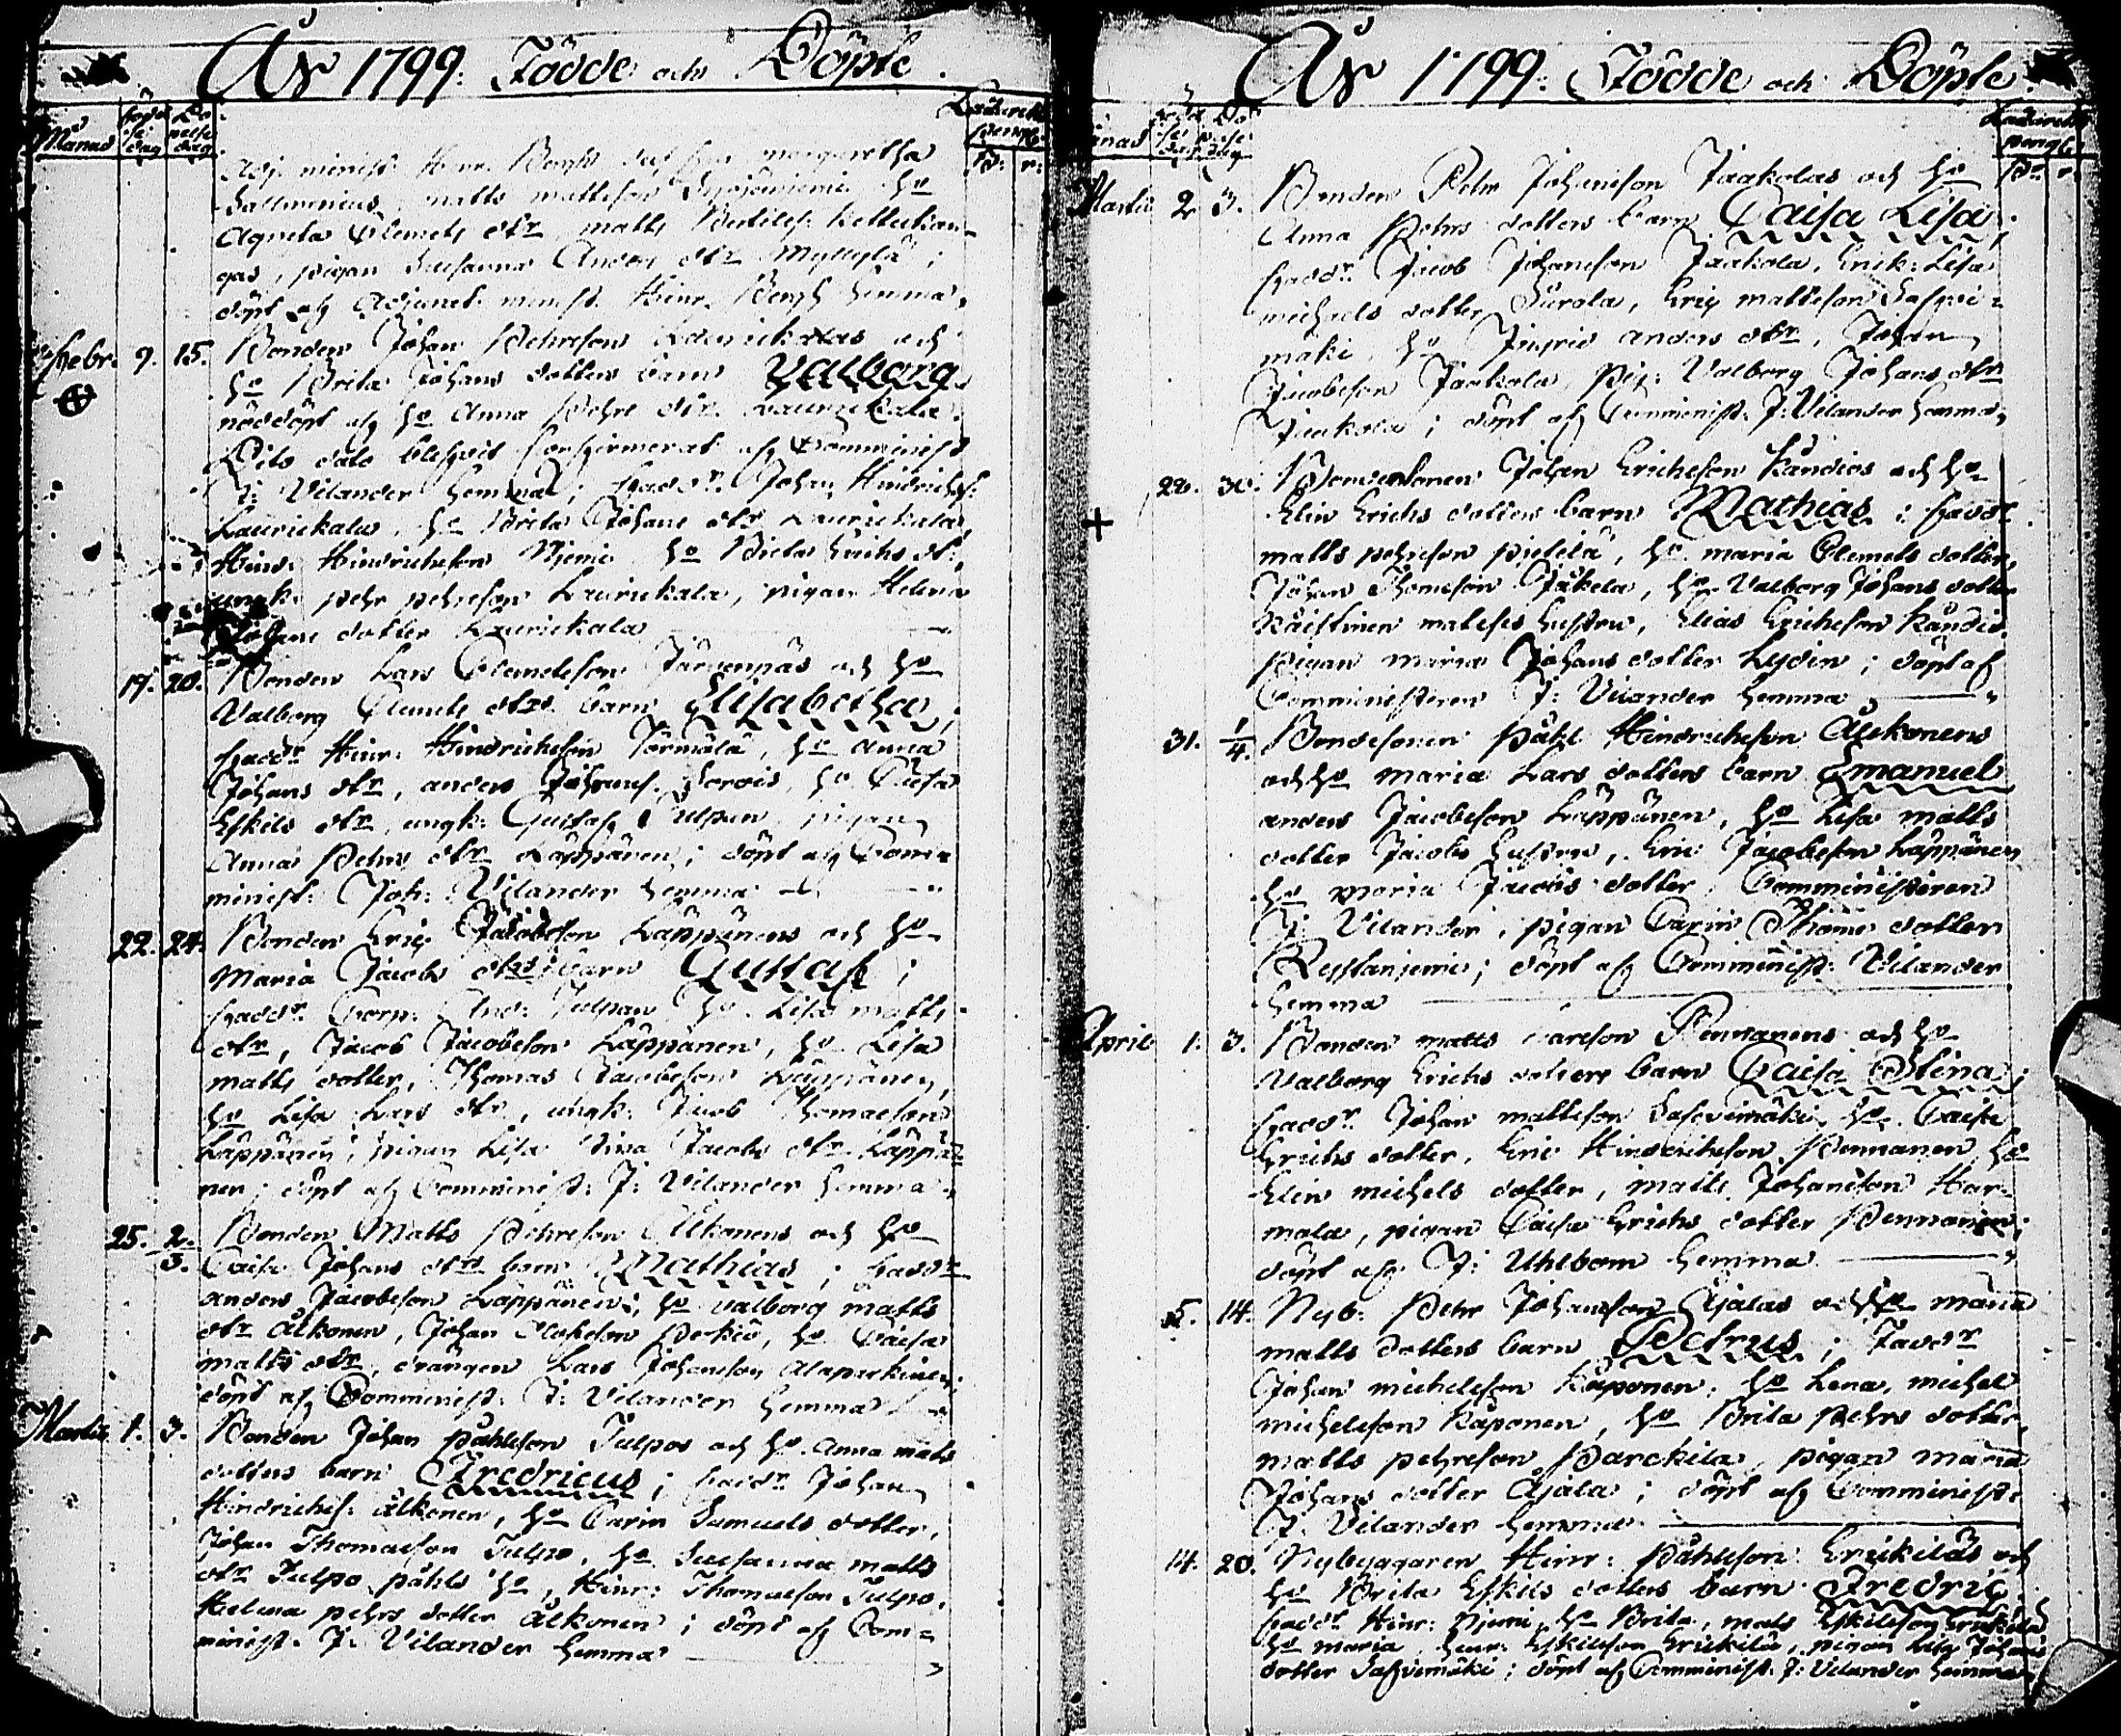 År 1799: Födde och Döpte.
Månad
Adj. minist. Hinr. Bergh margaretha
matts mattsson hu
Agneta Clemets dtr matts
gas, pigan Susanna Anders dtr Myllylä;
döpt af Adjunct. minist. Hinr. Bergh hemma.
Febr. 9. 15. Bonden Johan Pehrsson Laurickalas och
hu Brita Johans dotters barn Valborg
nöddöpt af hu Anna Pehrs dtr. Laurickala.
Dito dato blefvit Confirmerat af Comminist
J: Vilander hemma; Fadd:r Johan Hindrichs:
Laurickala, hu Brita Johans dtr Laurickala,
Hinr: Hindrichsson Njemi hu Brita Erichs dtr,
ungk: pehr pehrsson Laurickala, pigan Helena
Johans dotter Laurickala
19. 20. Bonden Lars Clemetsson Järvenpäs och hu
Valborg Clemets dtrs barn Elisabetha;
Fadd:r Hinr: Hindrichsson Törmälä, hu Anna
Johans dtr, anders Johans: hu Caisa
Eskils dtr, ungk: Gustaf Tulpan, pigan
Anna Pehrs dtr Läppänen; döpt af Com=
minist: Joh: Vilander hemma
22. 24. Bonden Eric Jacobsson Läppänens och hu
Maria Jacobs dtrs barn Gustaf;
Fadd:r Corp: And: Tulpan hu Lisa matts
dtr, Jacob Jacobsson Läppänen, hu Lisa
matts dotter, Thomas Jacobsson Läppänen,
hu Lisa Lars dtr, ungk: Jacob Thomasson
Läppänen, pigan Lisa Stina Jacobs dtr Läppä=
nen; döpt af Comminist: J: Vilander hemma.
25. 2/3. Bonden Matts Pehrsson Älkonens och hu
Caisa Johans dtrs barn Mathias; Fadd:r
anders Jacobsson Läppänen; hu valborg matts
dtr älkonen, Johan Perkiö, hu Caisa
matts dtr, drängen Lars Johansson Alaperkiö;
döpt af Comminist: J: Vilander hemma
Martii 1. 3. Bonden Johan påhlsson Tulpos och hu Anna mats
dotters barn Fredricus; Fadd:r Johan
Hindrichs: älkonen, hu Carin Samuels dotter,
Johan Thomasson Tulpo, hu Susanna matts
dtr Tulpo påhls hu, Hinr: Thomasson Tulpo,
Helena pehrs dotter älkonen; döpt af Com=
minist. J: Vilander hemma
År 1799: Födde och Döpte.
Martii 2 3. Bonden Pehr Johansson Jaakolas och hu
Anna Pehrs dotters barn Caisa Lisa;
Fadd:r Jacob Johansson Jaakola, Enck: Lisa
michels dotter Eric mattsson Safvi=
mäki, hu Ingrid anders dtr, Johan
Jacobsson Jaakola, Pig: Valborg Johans dtr
Jaakola; döpt af Comminist: J: Vilander hemma
28. 30. Bondesonen Johan Erichsson Kändiös och hu
Elin Erichs dotters barn Mathias; Fadd:r
matts pehrsson pietilä, hu maria Clemets dotter,
Johan Thomsson Jäkelä, hu Valborg Johans dotter
mattses hustru, Elias Erichsson Kändiö,
pigan maria Johans dotter Lydin; döpt af
Comministeren J: Vilander hemma
31. 1/4. Bondesonen påhl Hindrichsson Älkonens
och hu maria Lars dotters barn Emanuel
anders Jacobsson Läppänen, hu Lisa matts
dotter Jacobs hustru, Eric Jacobsson Läppänen
hu maria Jacobs dotter, Comministeren
J: Vilander, pigan Carin Thoms dotter
döpt af Comminist: Vilander
hemma
April 1. 3. Bonden matts Larsson Pennanens och hu
Valborg Erichs dotters barn Caisa Stina;
Fadd:r Johan mattsson Safvimäki hu Caisa
Erichs dotter, Eric Hindrichsson Pennanen hu
Elin michels dotter, matts Johansson Har=
mala, pigan Caisa Erichs dotter Pennanen;
döpt af J: Uhlbom hemma
5. 14. Nyb: Pehr Johansson Äjälas och hu maria
matts dotters barn Petrus; Fadd:r
Johan michelsson Käponen, hu Lena, michel
michelsson Käponen, hu Brita Pehrs dotter,
matts pehrsson Parckila, pigan maria
Johans dotter Äjälä; döpt af Comminist:
J: Vilander hemma
14. 20. Nybyggaren Hinr: Påhlsson Erickiläs och
hu Brita Eskils dotters barn Fredric
Fadd:r Hinr: Njemi, hu Brita, mats Eskilsson Erickilä
hu maria, Hinr: Eskilsson Erickilä, pigan Lisa Johans
dotter Safvimäki; döpt af Comminist: J: Vilander hemma